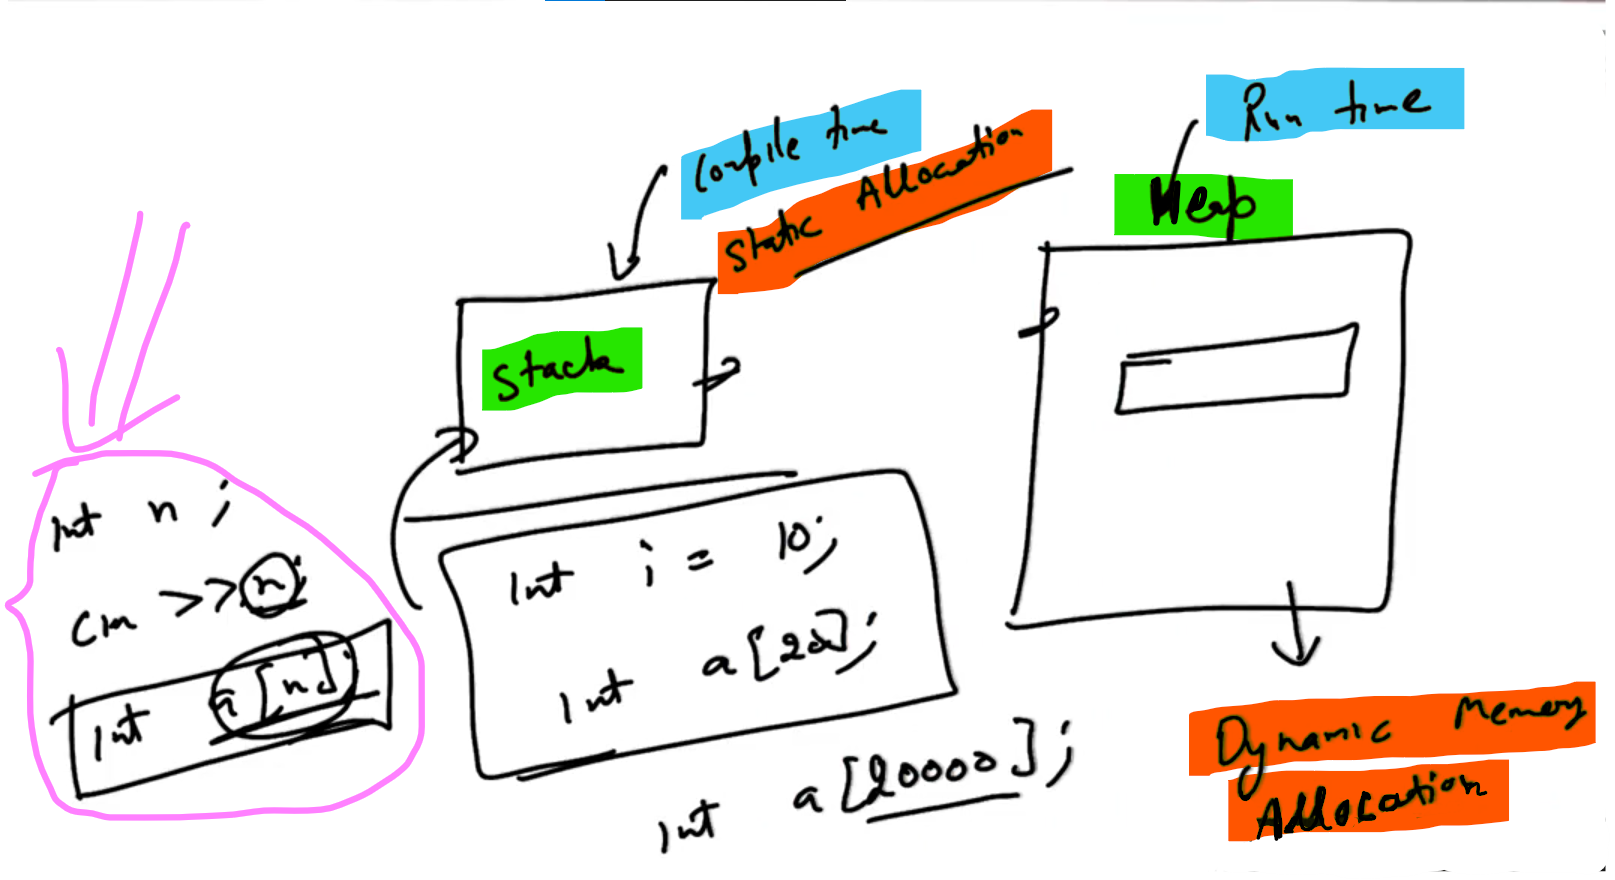 Compile time
Static Allocation
Run time
Heap
Stack
int n ;
cin >> n;
int a[n];
int i = 10;
int a[20];
int a[20000];
Dynamic Memory
Allocation